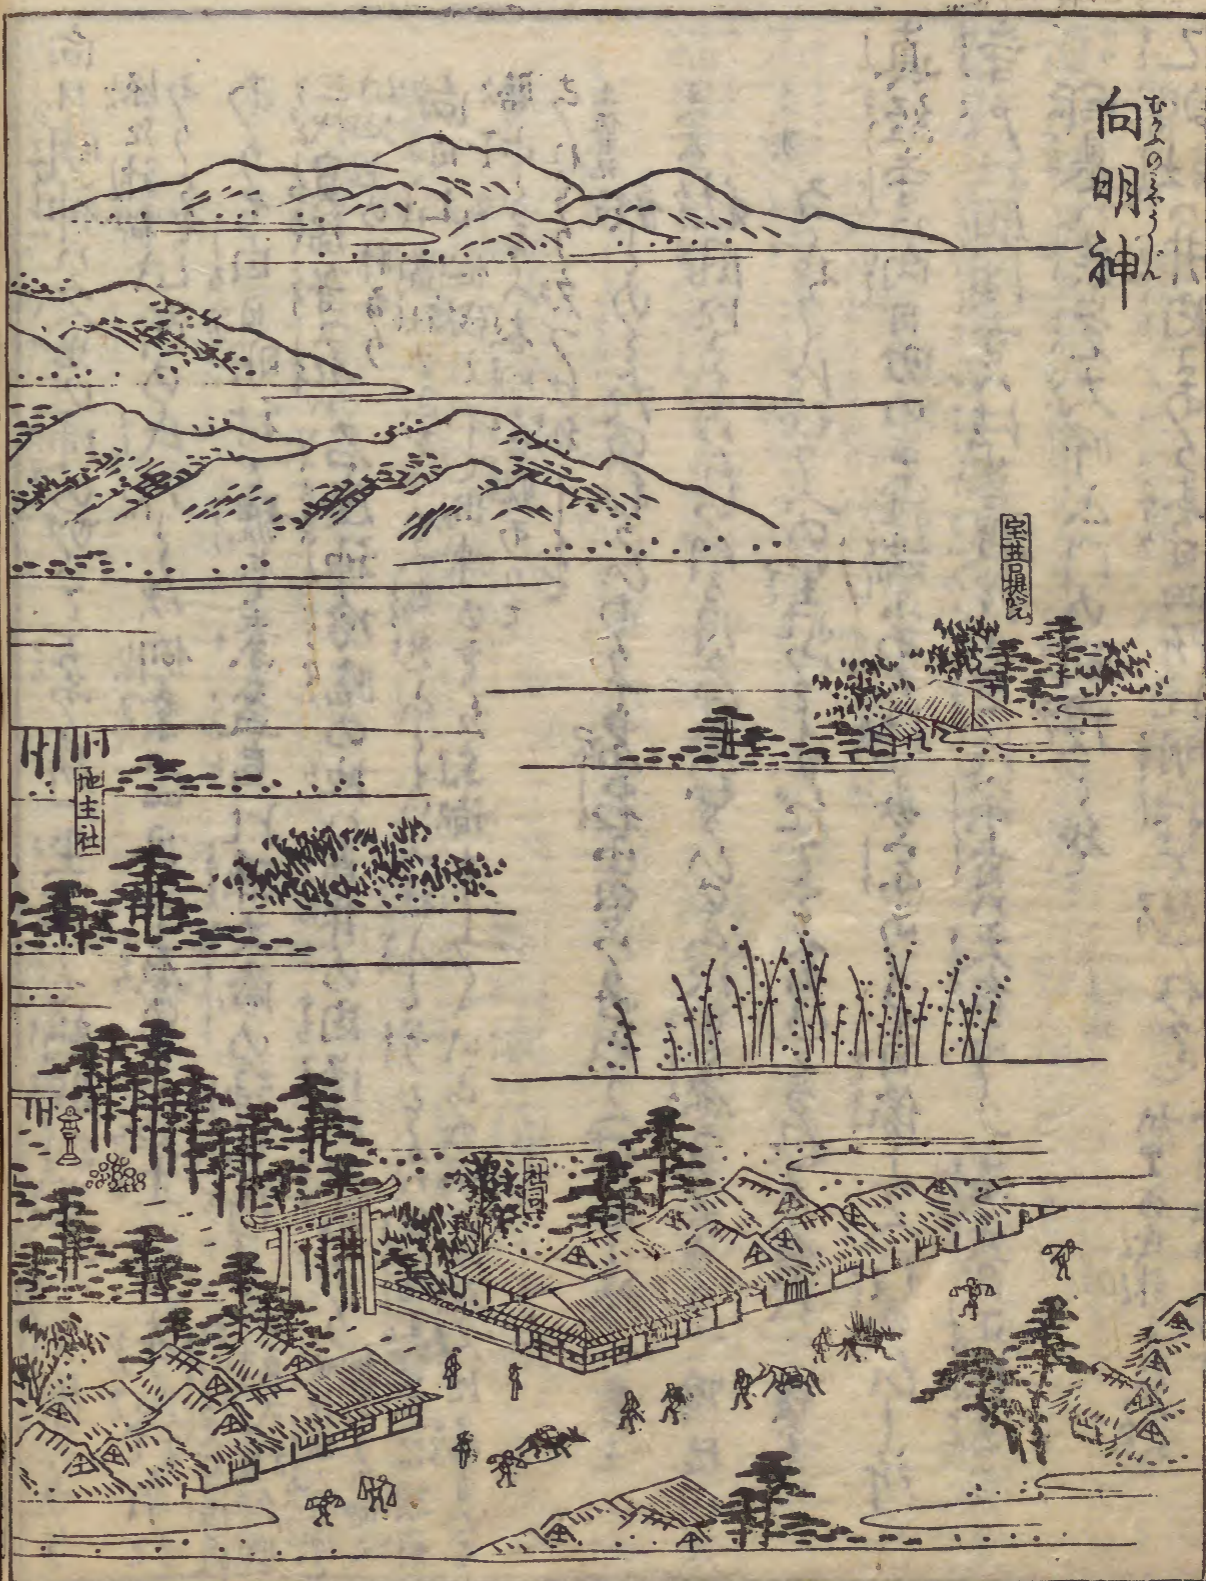 向明神
むかふのミやうじん
宝菩提院
地主社
社司